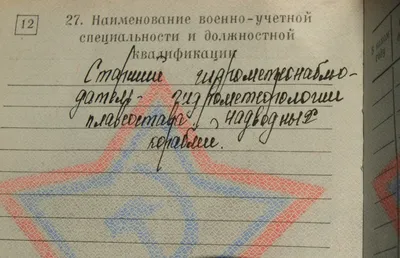 12
27. Наименование военно-учетной
специальности и должностной
квалификации
Старший гидрометнаблю-
датель гидрометеорологии
плавсостава надводных
кораблей.